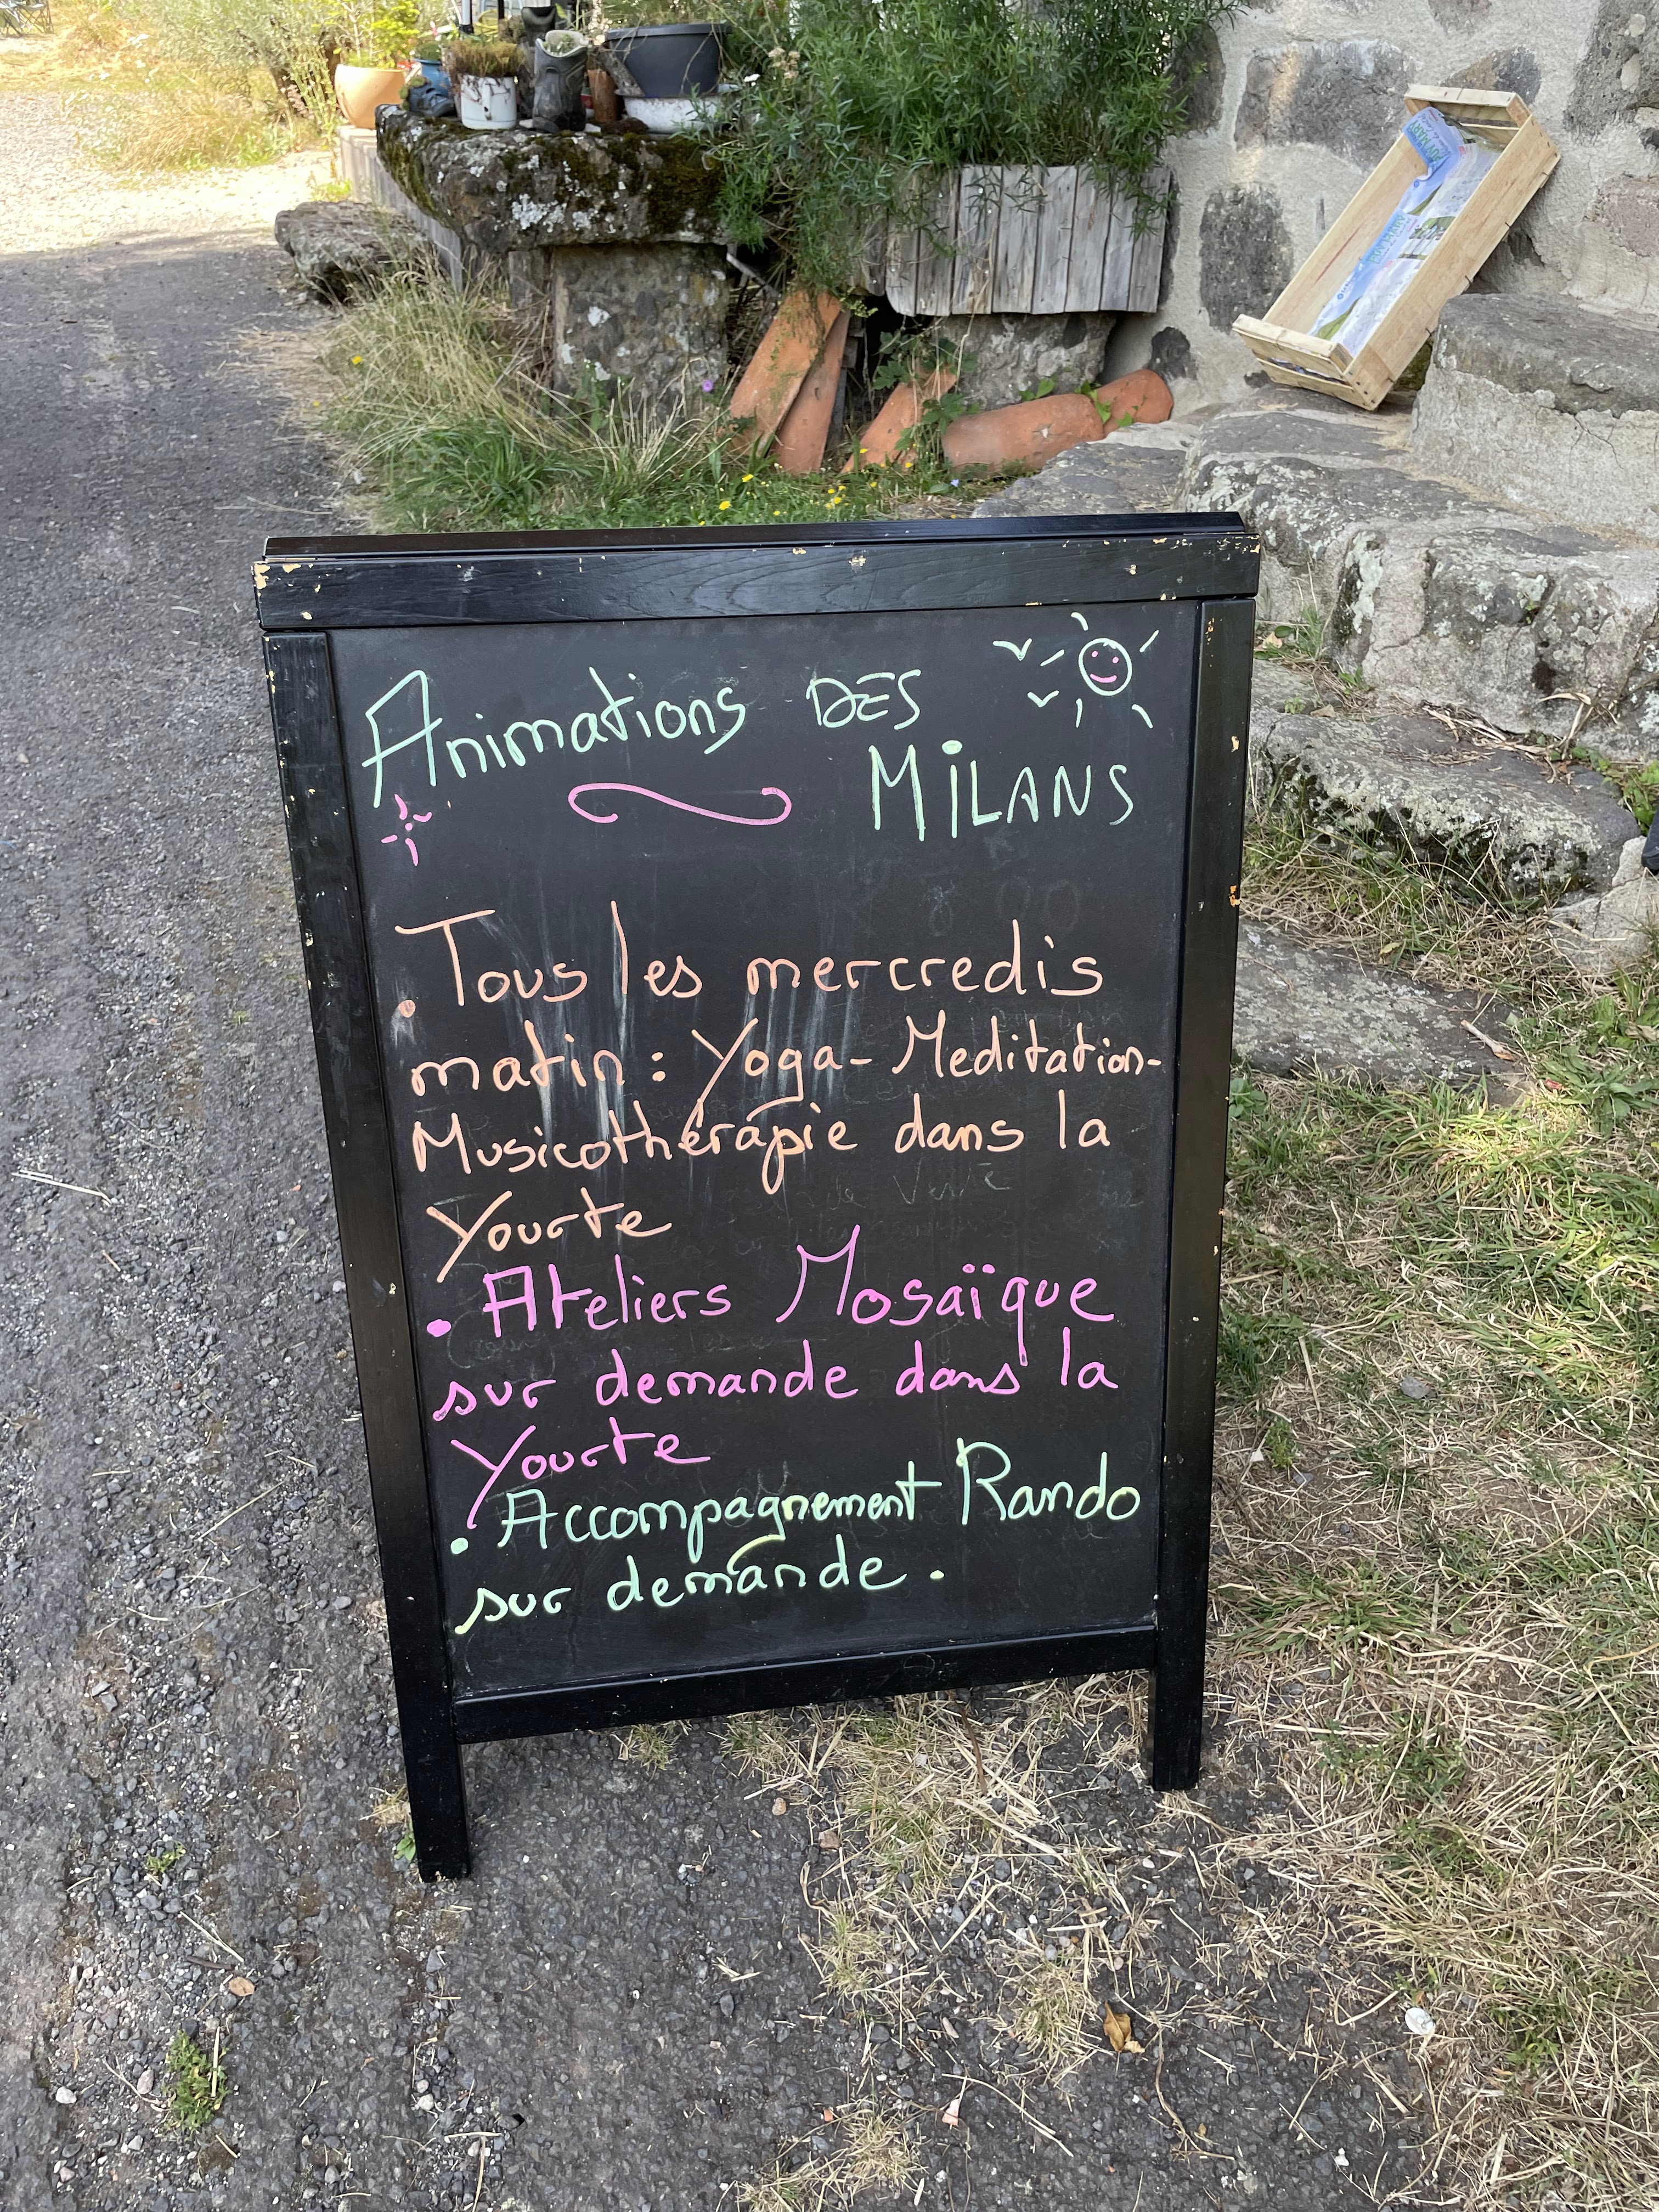 Animations DES
MiLANS
. Tous les mercredis
matin : Yoga - Meditation -
Musicothérapie dans la
Yourte
. Ateliers Mosaïque
sur demande dans la
Yourte
. Accompagnement Rando
sur demande .